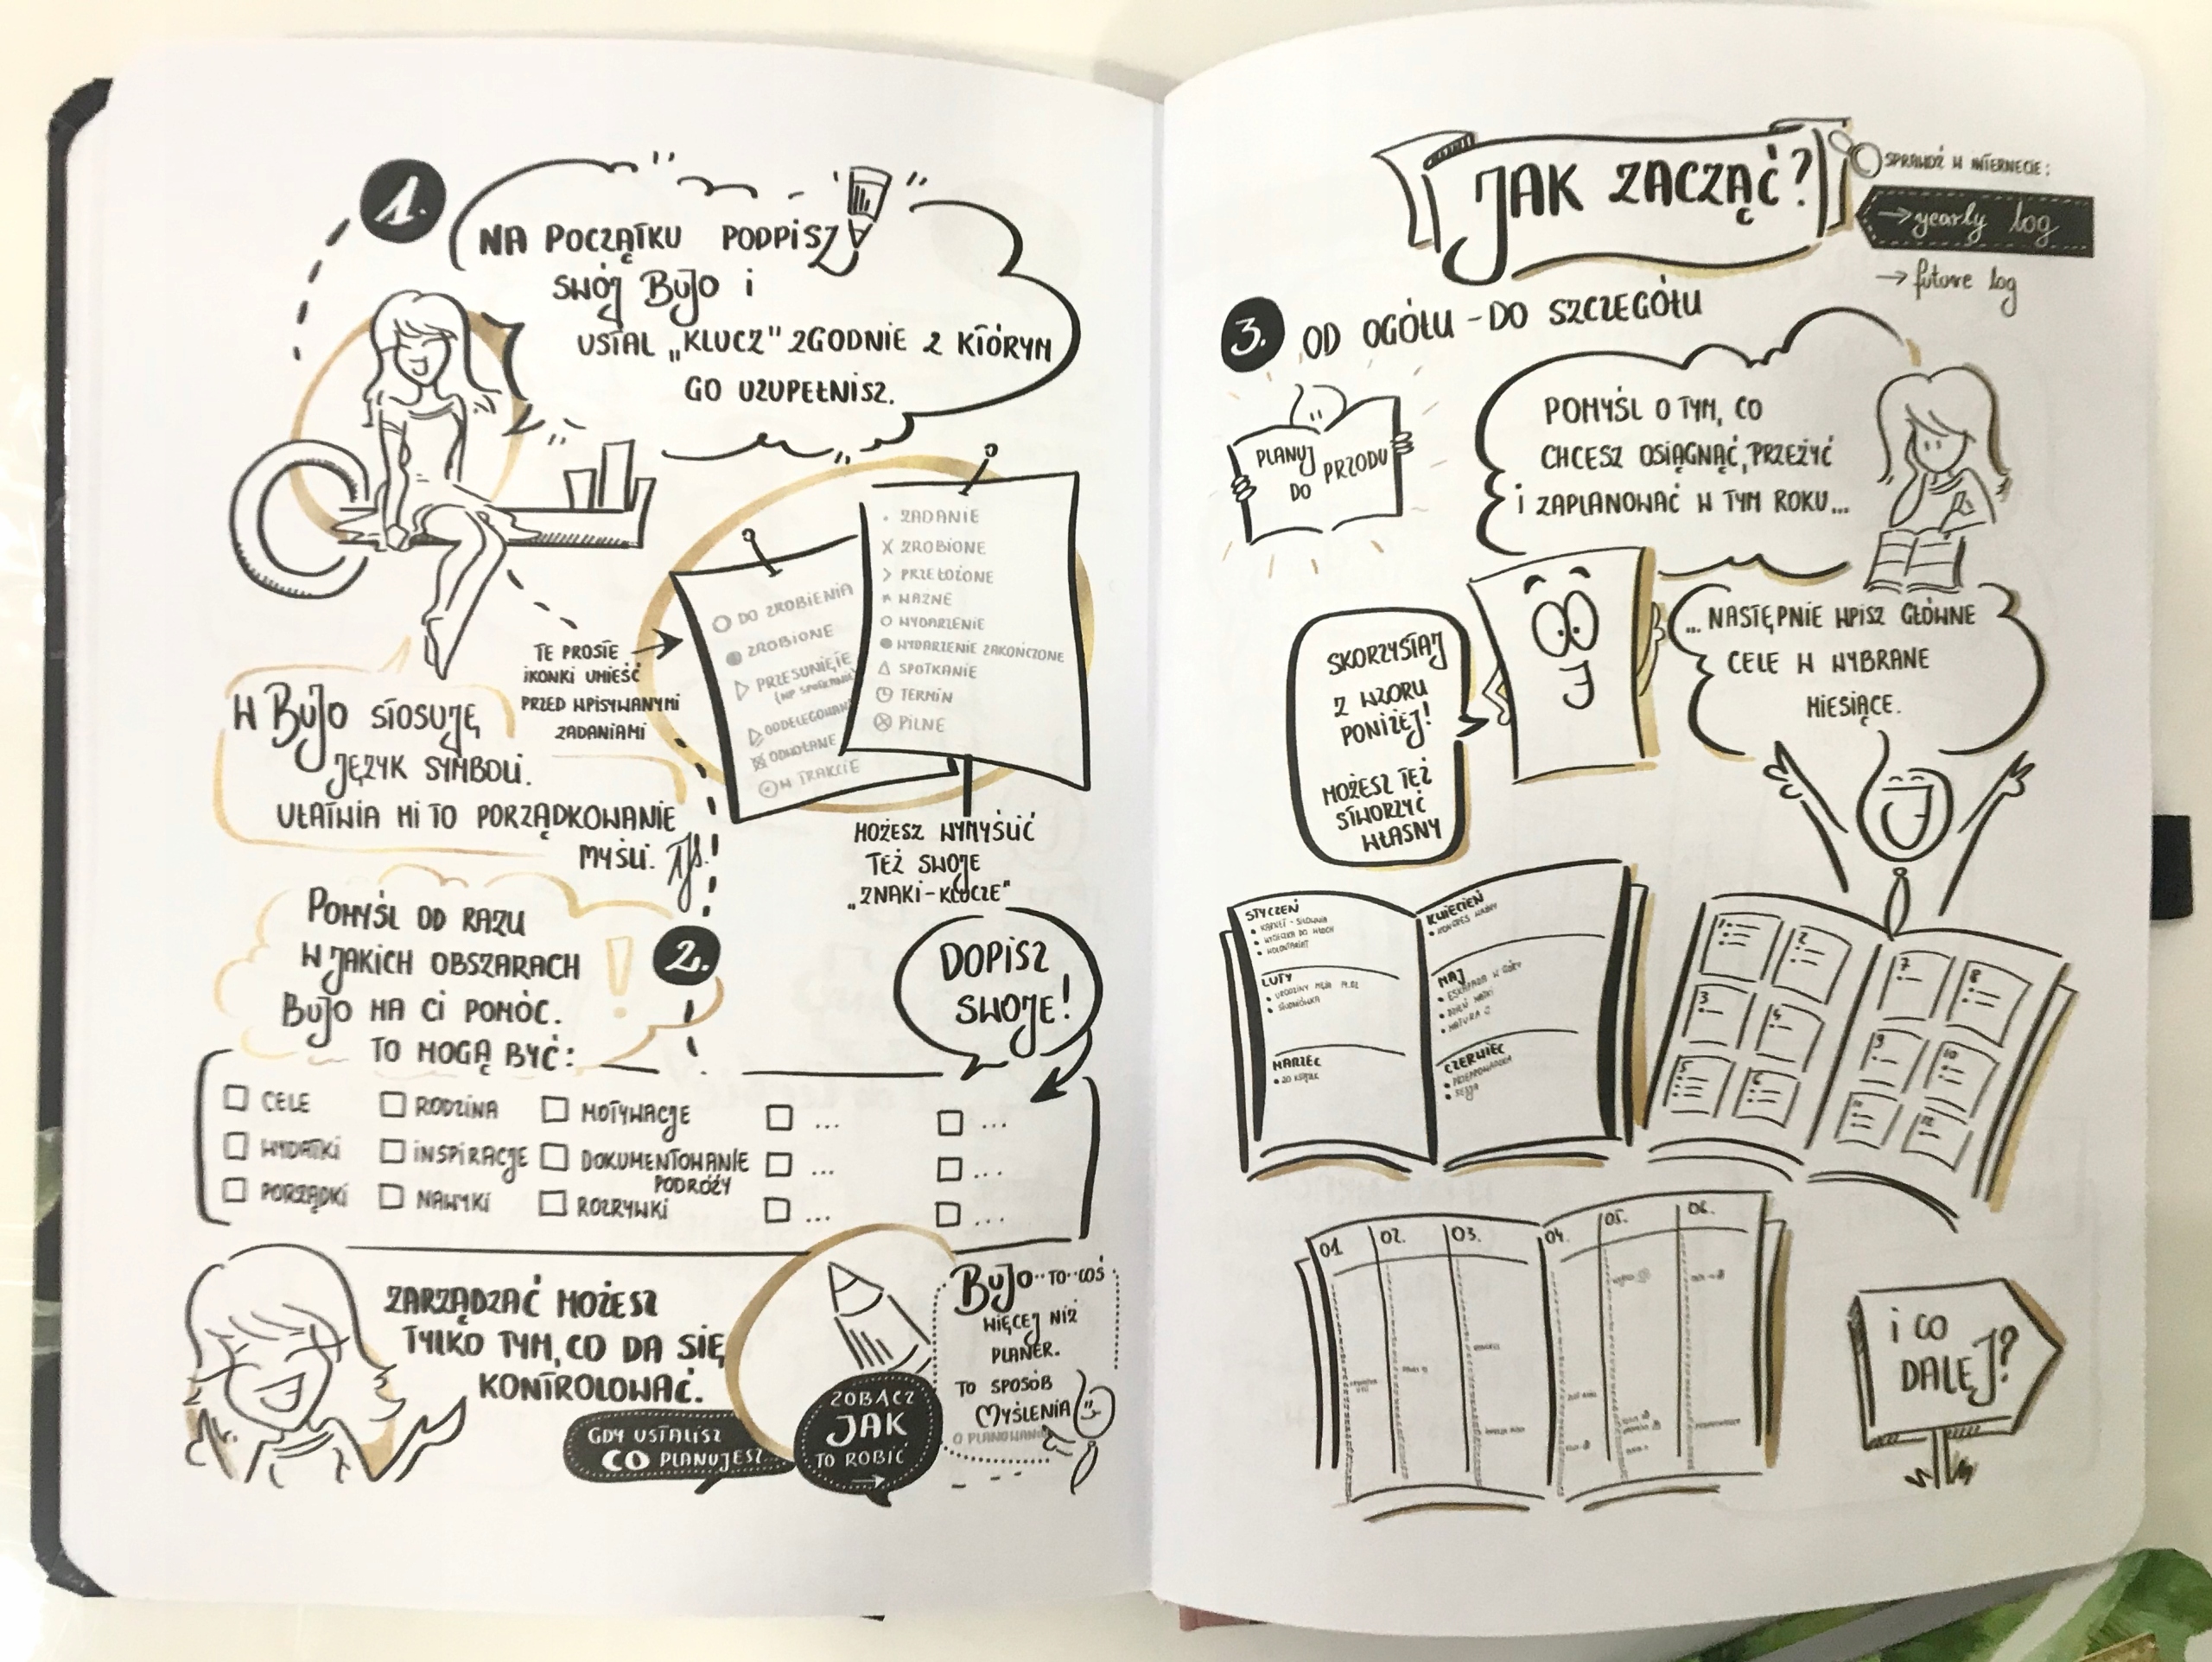 1.
NA POCZĄTKU PODPISZ
SWÓJ BUJO i
USTAL „KLUCZ" ZGODNIE Z KTÓRYM
GO UZUPEŁNISZ.
W BUJO STOSUJĘ
JĘZYK SYMBOLI.
UŁATWIA MI TO PORZĄDKOWANIE
MYŚLI.
TE PROSTE
IKONKI UMIEŚĆ
PRZED WPISYWANYMI
ZADANIAMI
DO ZROBIENIA
ZROBIONE
PRZESUNIĘTE
ODDELEGOWANE
ODWOŁANE
W TRAKCIE
• ZADANIE
X ZROBIONE
> PRZEŁOŻONE
* WAŻNE
O WYDARZENIE
● WYDARZENIE ZAKOŃCZONE
△ SPOTKANIE
TERMIN
⊗ PILNE
MOŻESZ WYMYŚLIĆ
TEŻ SWOJE
„ZNAKI-KLUCZE"
2.
POMYŚL OD RAZU
W JAKICH OBSZARACH
BUJO MA CI POMÓC.
TO MOGĄ BYĆ:
DOPISZ
SWOJE!
☐ CELE ☐ RODZINA ☐ MOTYWACJE ☐ ... ☐ ...
☐ WYDATKI ☐ INSPIRACJE ☐ DOKUMENTOWANIE PODRÓŻY ☐ ... ☐ ...
☐ PORZĄDKI ☐ NAWYKI ☐ ROZRYWKI ☐ ... ☐ ...
ZARZĄDZAĆ MOŻESZ
TYLKO TYM, CO DA SIĘ
KONTROLOWAĆ.
GDY USTALISZ
CO PLANUJESZ...
ZOBACZ
JAK
TO ROBIĆ
→
BUJO TO COŚ
WIĘCEJ NIŻ
PLANER.
TO SPOSÓB
MYŚLENIA
O PLANOWANIU
JAK ZACZĄĆ?
SPRAWDŹ W INTERNECIE:
→ yearly log
→ future log
3. OD OGÓŁU - DO SZCZEGÓŁU
PLANUJ
DO PRZODU
POMYŚL O TYM, CO
CHCESZ OSIĄGNĄĆ, PRZEŻYĆ
i ZAPLANOWAĆ W TYM ROKU...
...NASTĘPNIE WPISZ GŁÓWNE
CELE W WYBRANE
MIESIĄCE.
SKORZYSTAJ
Z WZORU
PONIŻEJ!
MOŻESZ TEŻ
STWORZYĆ
WŁASNY
STYCZEŃ
• KARNET - SIŁOWNIA
• WYCIECZKA DO WŁOCH
• WOLONTARIAT
LUTY
• STUDNIÓWKA
MARZEC
KWIECIEŃ
MAJ
• ESKAPADA W GÓRY
• DZIEŃ MATKI
• MATURA
CZERWIEC
• PRZEPROWADZKA
• SESJA
1. 2. 7. 8.
3. 4. 9. 10.
5. 6. 11. 12.
01 02. 03. 04. 05. 06.
i CO
DALEJ?